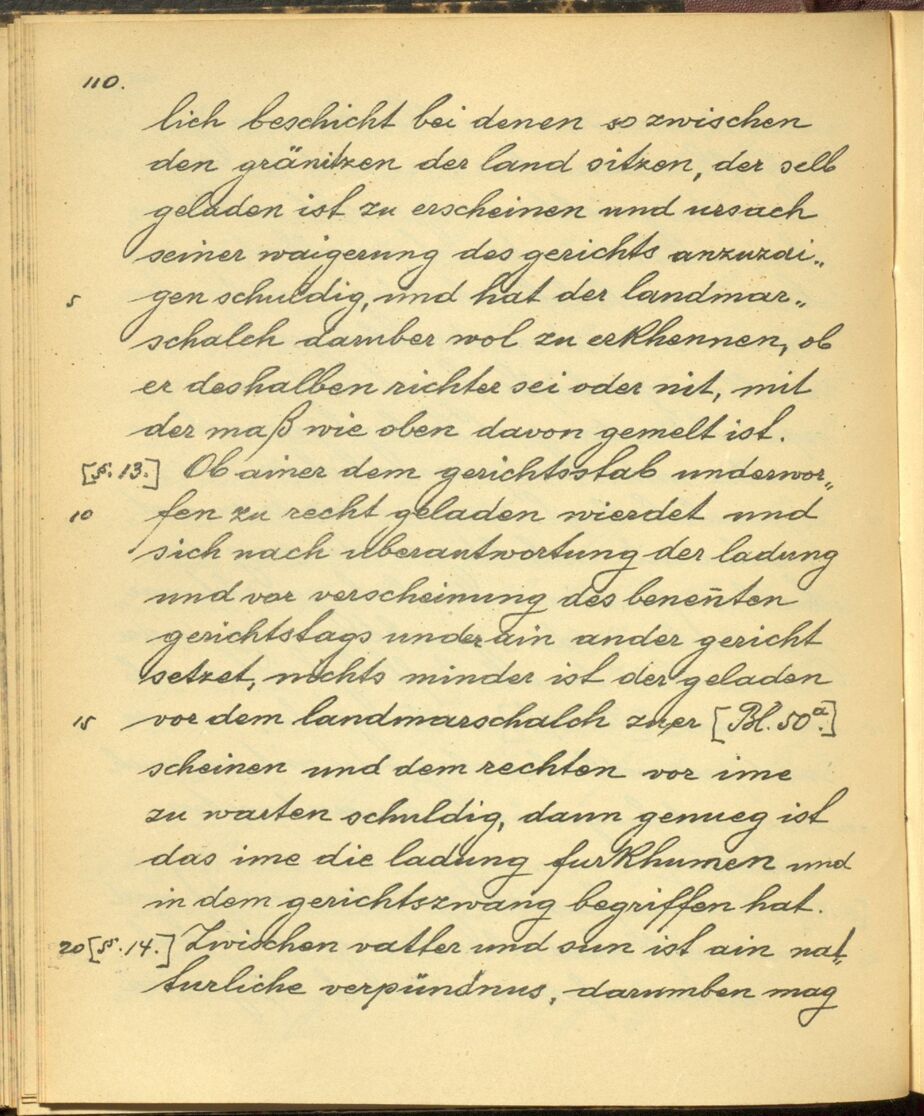 110.
lich beschicht bei denen so zwischen
den gränitzen der land sitzen, der selb
geladen ist zu erscheinen und ursach
seiner waigerung des gerichts anzuzai„
5 gen schuldig, und hat der landmar„
schalch darumber wol zu erkhennen, ob
er deshalben richter sei oder nit, mit
der maß wie oben davon gemelt ist.
[§. 13.] Ob ainer dem gerichtsstab underwor„
10 fen zu recht geladen wierdet und
sich nach uberantwortung der ladung
und vor verscheinung des beneñten
gerichtstags under ain ander gericht
setzet, nichts minder ist der geladen
15 vor dem landmarschalch zuer [Bl. 50a.]
scheinen und dem rechten vor ime
zu warten schuldig, dann genueg ist
das ime die ladung furkhumen und
in dem gerichtszwang begriffen hat.
20 [§. 14.] Zwischen vatter und sun ist ain nat„
turliche verpündnus, darumben mag